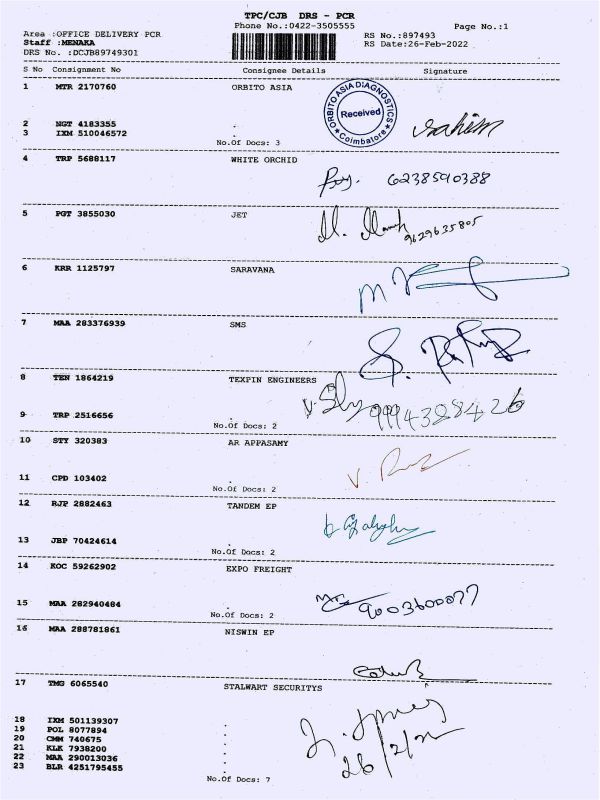 TPC/CJB DRS - PCR
Phone No.:0422-3505555 Page No.:1
Area :OFFICE DELIVERY PCR RS No.:897493
Staff :MENAKA RS Date:26-Feb-2022
DRS No. :DCJB89749301
S No Consignment No Consignee Details Signature
1 MTR 2170760 ORBITO ASIA
ORBITO ASIA DIAGNOSTICS
Received
Coimbatore
2 NGT 4183355 .
3 IXM 510046572 .
No.Of Docs: 3
4 TRP 5688117 WHITE ORCHID
6238590388
5 PGT 3855030 JET
9629635805
6 KRR 1125797 SARAVANA
7 MAA 283376939 SMS
8 TEN 1864219 TEXPIN ENGINEERS
9994388426
9 TRP 2516656 .
No.Of Docs: 2
10 STY 320383 AR APPASAMY
11 CPD 103402 .
No.Of Docs: 2
12 RJP 2882463 TANDEM EP
13 JBP 70424614 .
No.Of Docs: 2
14 KOC 59262902 EXPO FREIGHT
9003600077
15 MAA 282940484 .
No.Of Docs: 2
16 MAA 288781861 NISWIN EP
17 TMG 6065540 STALWART SECURITYS
18 IXM 501139307 .
19 POL 8077894 .
20 CMM 740675 .
21 KLK 7938200 .
22 MAA 290013036 .
23 BLR 4251795455 .
26/2/22
No.Of Docs: 7